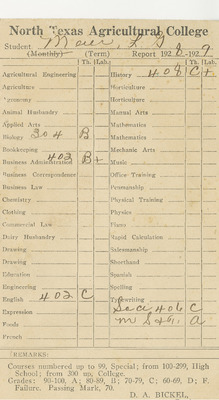 North Texas Agricultural College
Student
(Monthly) (Term) Report 1928-1929
Th. Lab. Th. Lab.
Agricultural Engineering History 408 C+
Agriculture Horticulture
Agronomy Horticulture
Animal Husbandry Manual Arts
Applied Arts Mathematics
Biology 304 B Mathematics
Bookkeeping Mechanic Arts
Business Administration 403 B+ Music
Business Correspondence Office Training
Business Law Penmanship
Chemistry Physical Training
Clothing Physics
Commercial Law Piano
Dairy Husbandry Rapid Calculation
Drawing Salesmanship
Drawing Shorthand
Education Spanish
Engineering Spelling
English 402 C Typewriting
Expression 406 C
Foods M S & T. A
French
REMARKS:
Courses numbered up to 99, Special; from 100-299, High
School; from 300 up, College.
Grades: 90-100, A; 80-89, B; 70-79, C; 60-69, D; F.
Failure. Passing Mark, 70.
D. A. BICKEL,